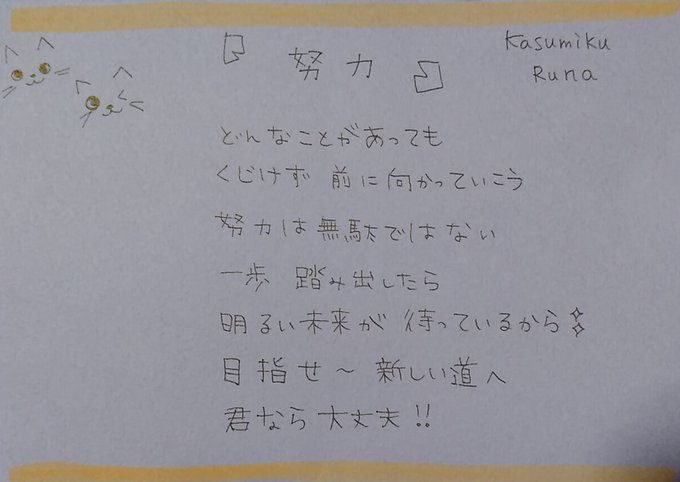 『努力』
Kasumiku
Runa
どんなことがあっても
くじけず 前に向かっていこう
努力は無駄ではない
一歩 踏み出したら
明るい未来が 待っているから
目指せ~ 新しい道へ
君なら大丈夫!!